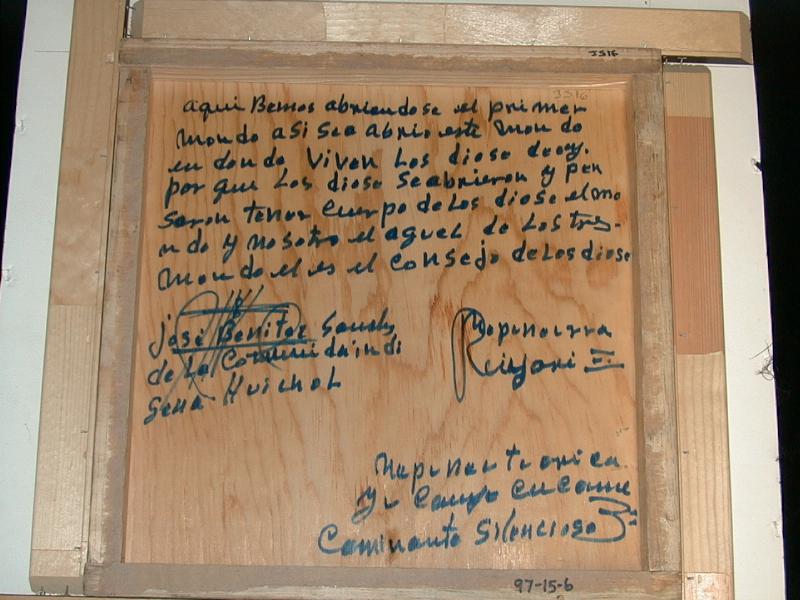 JS16
JS16
aqui Bemos abriendose el primer
mondo asi sea abrio este mondo
en dondo Viven Los diose
por que Los diose seabrieron y pen
saron tener Cuerpo de Los diose el mo
ndo y nosotro el aguel de Los tres-
mondo el es el Consejo de Los diose
José Benitez Sanchs
de La Comunida indi
Gena Huichol
Yuri II
Caminante Silencioso
97-15-6